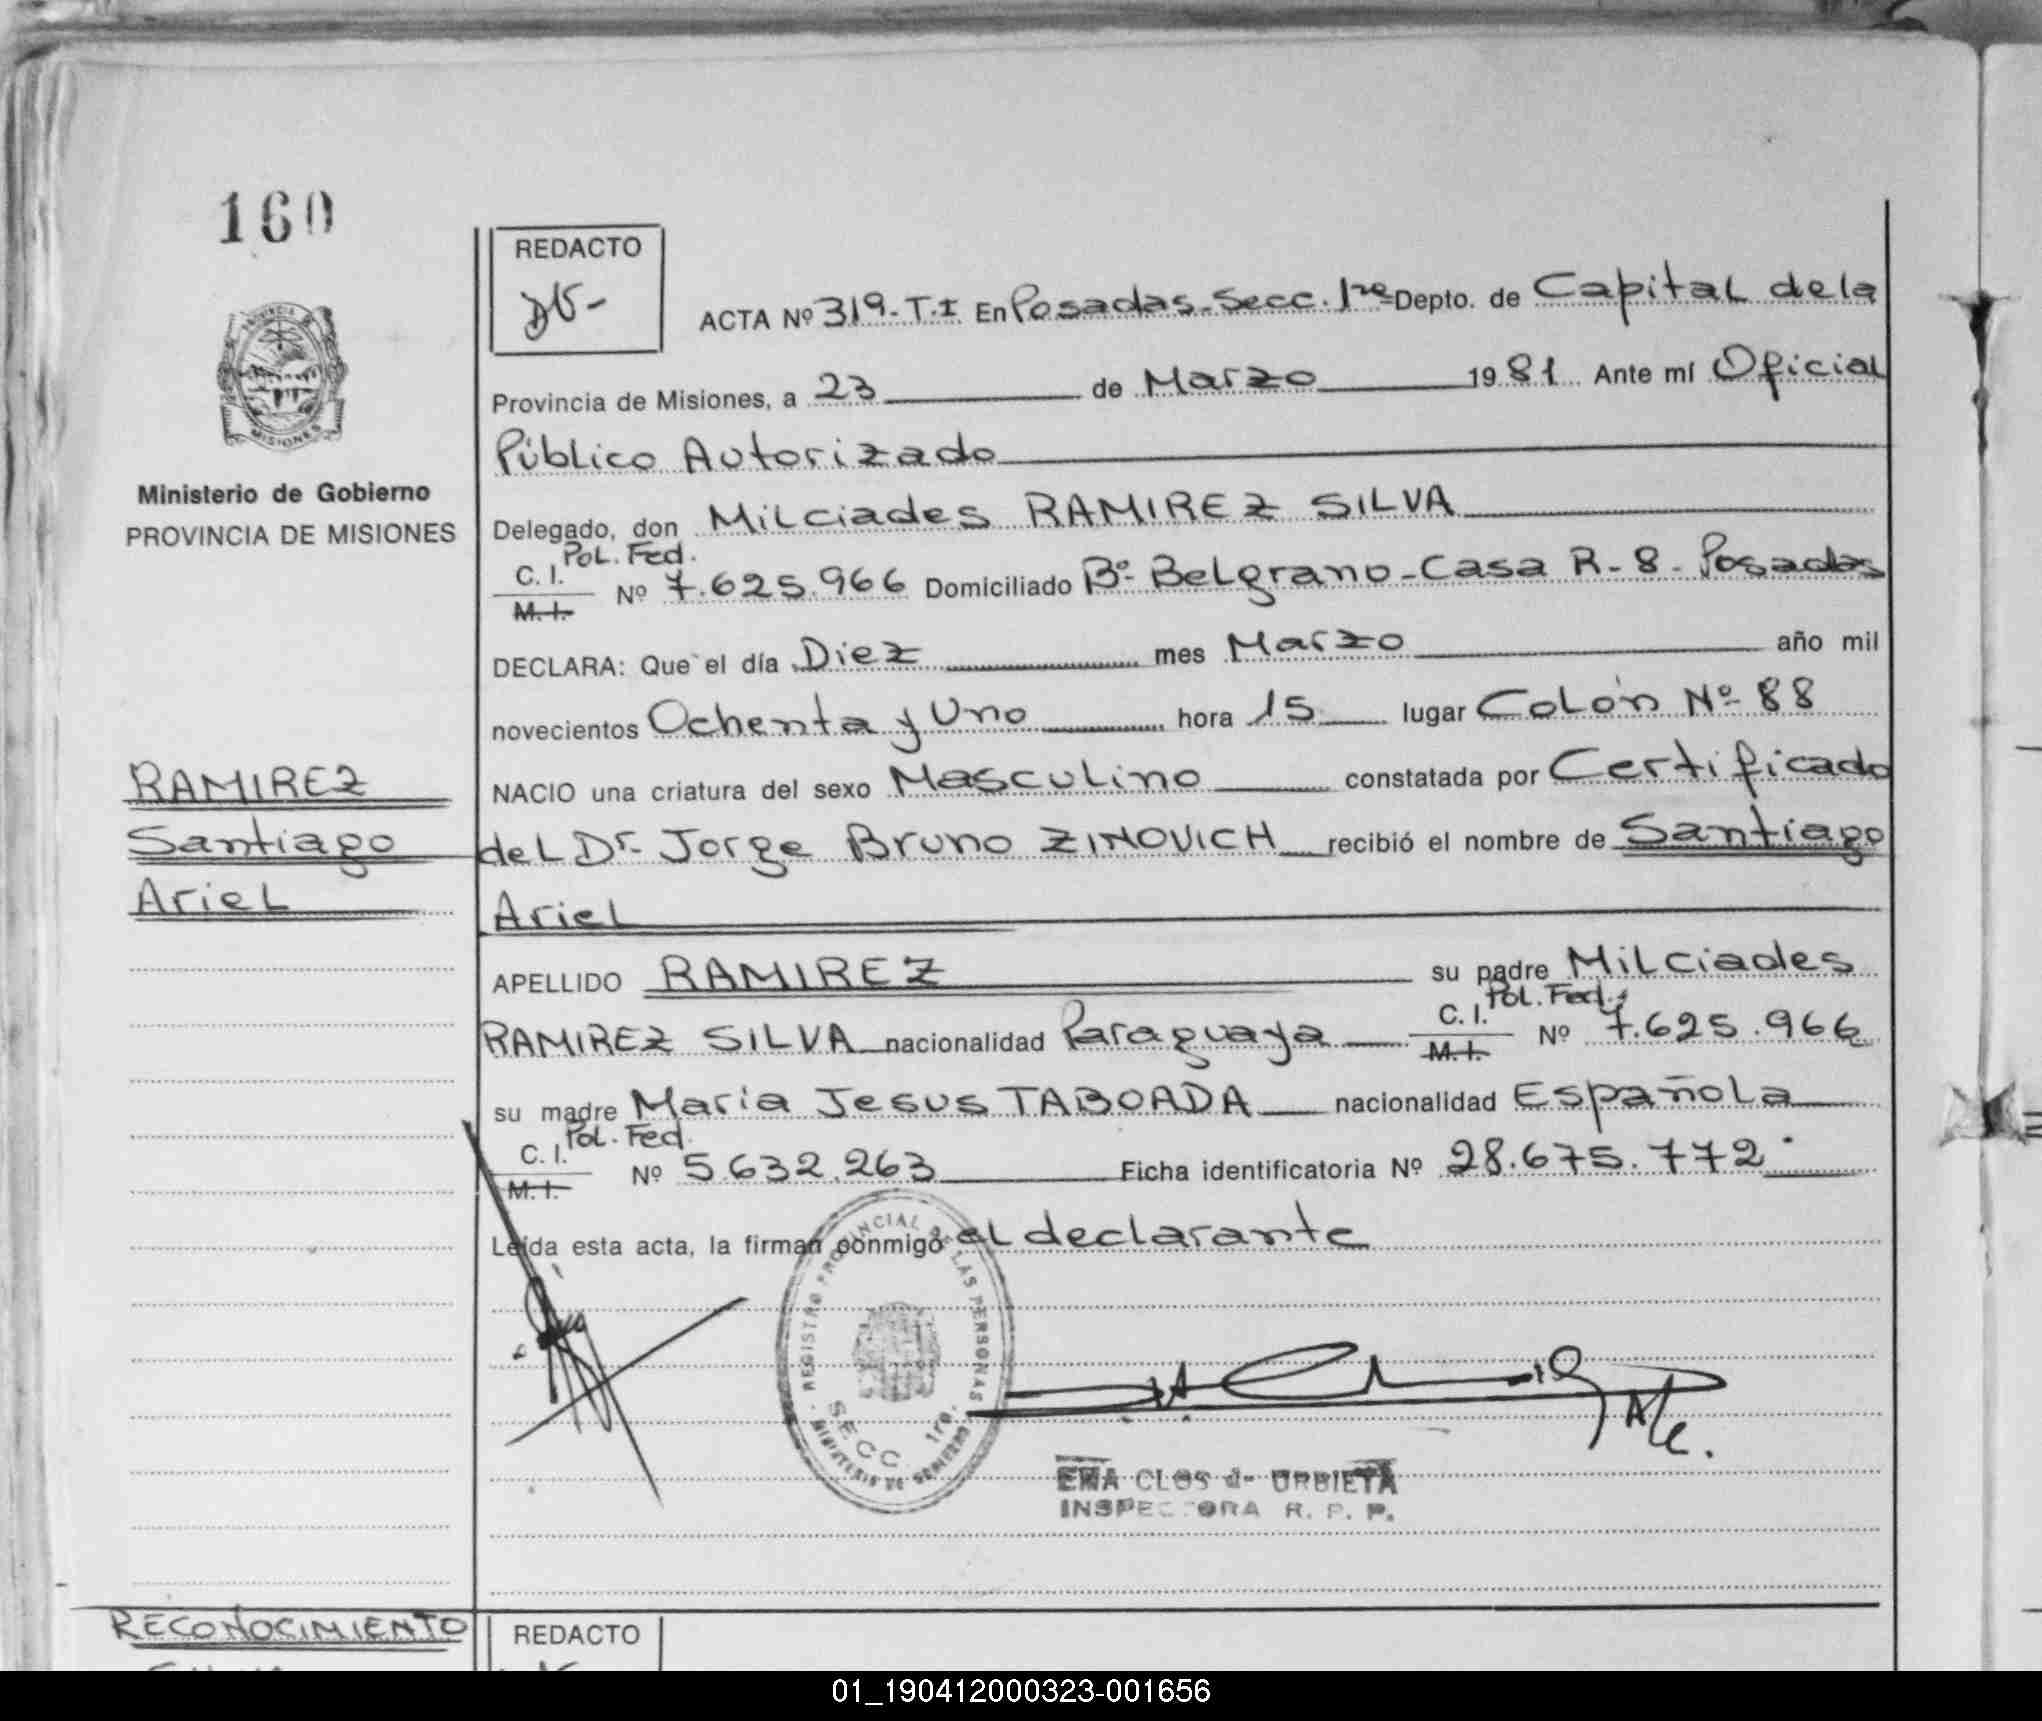 160
REDACTO
ACTA Nº 319-T.I En Posadas-Secc. 1ra Depto. de Capital de la
Provincia de Misiones, a 23 de Marzo 1981 Ante mí Oficial
Público Autorizado
Ministerio de Gobierno
PROVINCIA DE MISIONES
Delegado, don Milciades RAMIREZ SILVA
Pol. Fed.
C. I.
M. I.
Nº 7.625.966 Domiciliado Bº Belgrano-Casa R-8-Posadas
DECLARA: Que el día Diez mes Marzo año mil
novecientos Ochenta y Uno hora 15 lugar Colón Nº 88
NACIO una criatura del sexo Masculino constatada por Certificado
del Dr. Jorge Bruno ZINOVICH recibió el nombre de Santiago
Ariel
RAMIREZ
Santiago
Ariel
APELLIDO RAMIREZ su padre Milciades
Pol. Fed.
RAMIREZ SILVA nacionalidad Paraguaya C. I. M. I. Nº 7.625.966
su madre Maria Jesus TABOADA nacionalidad Española
Pol. Fed.
C. I.
M. I.
Nº 5.632.263 Ficha identificatoria Nº 28.675.772
Leída esta acta, la firman conmigo el declarante
REGISTRO PROVINCIAL DE LAS PERSONAS
SECC 1ra.
MINISTERIO DE GOBIERNO
EMA CLOS de URBIETA
INSPECTORA R. P. P.
RECONOCIMIENTO
REDACTO
01_190412000323-001656